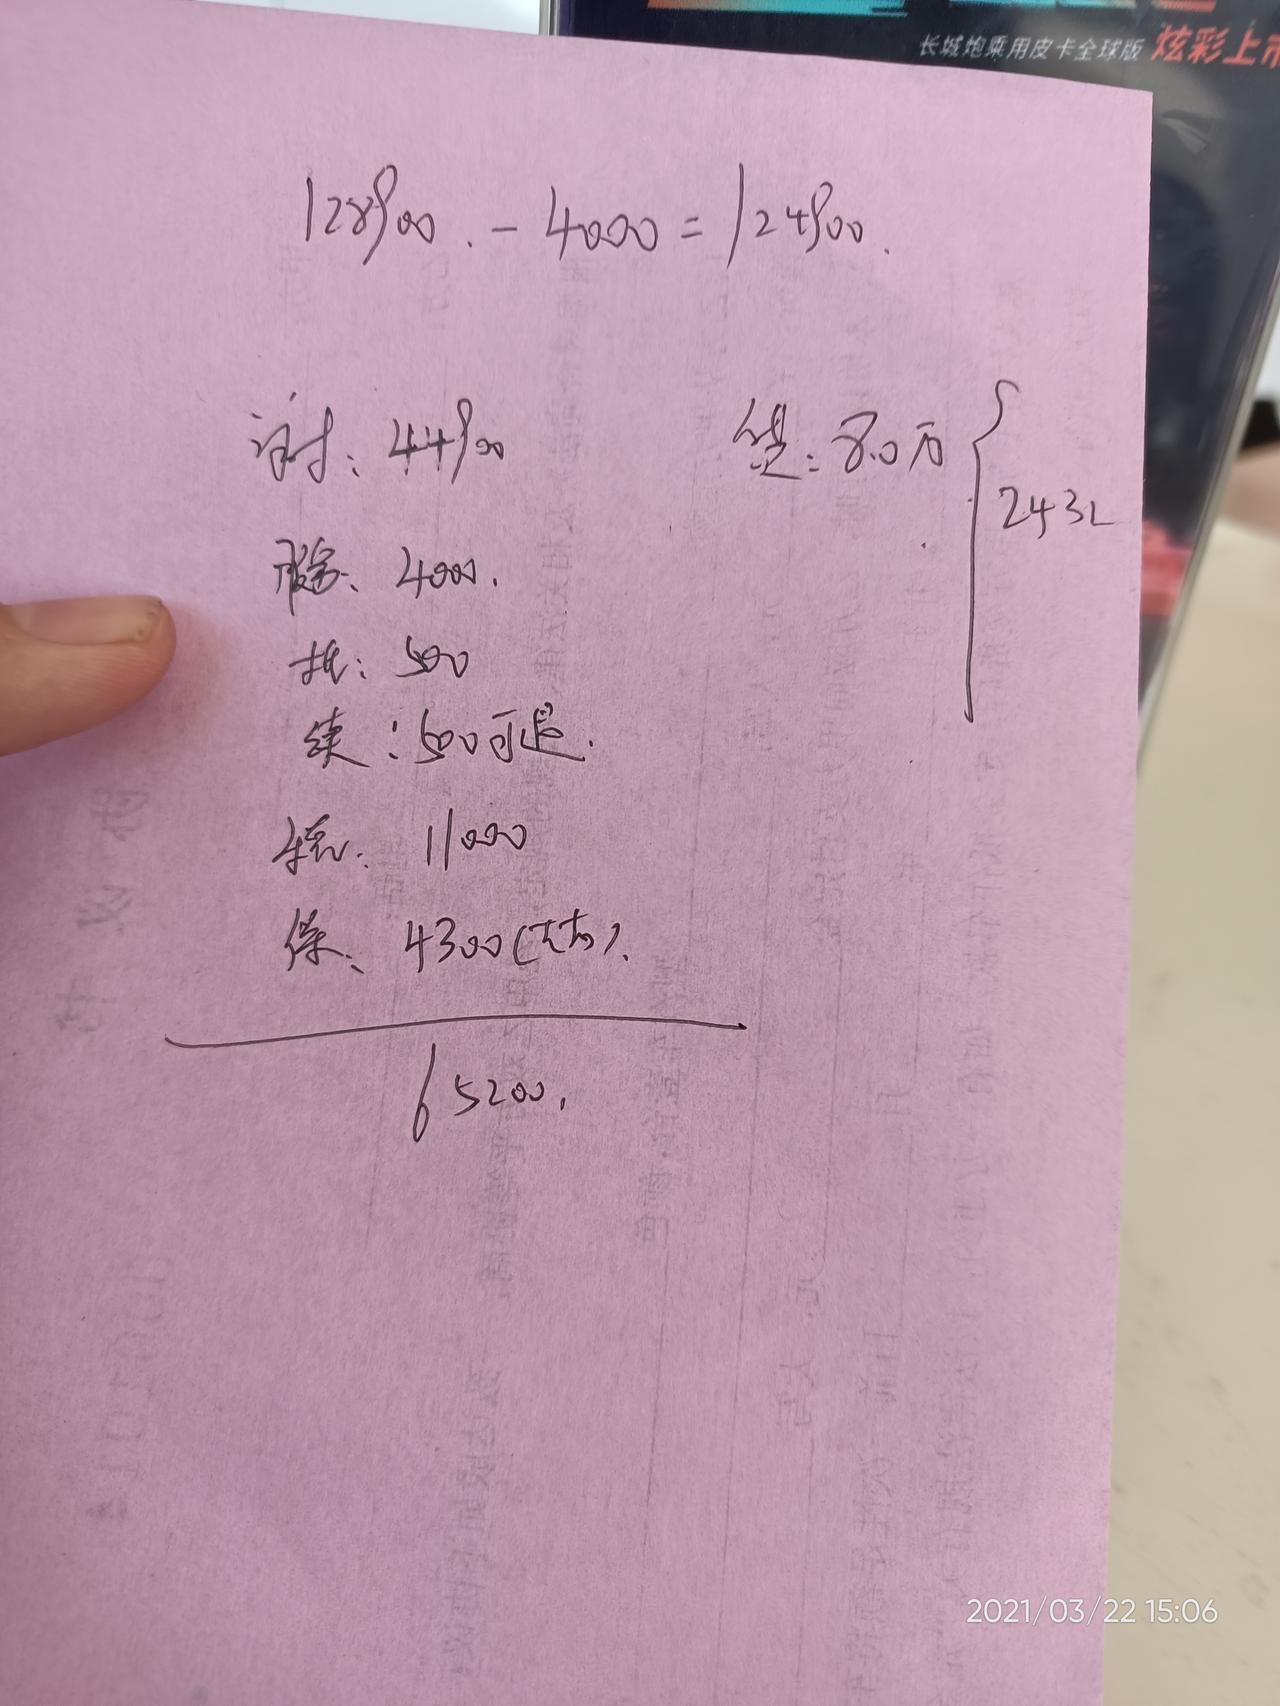 长城炮乘用皮卡全球版 炫彩上市
128900.-4000=124900.
首付:44900
贷:8.0万
2432
服务、4000.
抵:500
续:500可退.
车税.11000
保、4300(左右).
65200.
2021/03/22 15:06